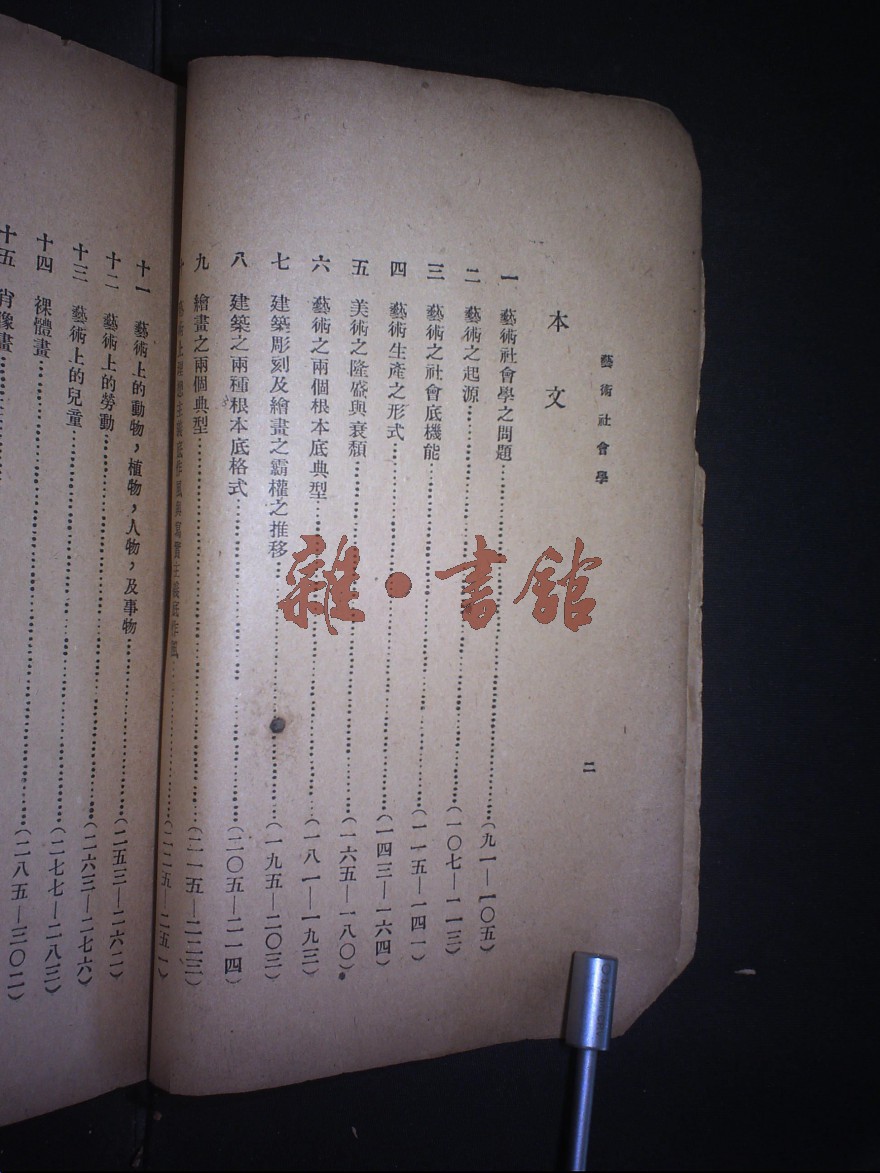 藝術社會學
二
本文
一 藝術社會學之問題……(九一—一〇五)
二 藝術之起源……(一〇七—一一三)
三 藝術之社會底機能……(一一五—一四一)
四 藝術生產之形式……(一四三—一六四)
五 美術之隆盛與衰頹……(一六五—一八〇)
六 藝術之兩個根本底典型……(一八一—一九三)
七 建築彫刻及繪畫之霸權之推移……(一九五—二〇三)
八 建築之兩種根本底格式……(二〇五—二一四)
九 繪畫之兩個典型……(二一五—二二三)
十 藝術上理想主義底作風與寫實主義底作風……(二二五—二五一)
十一 藝術上的動物,植物,人物,及事物……(二五三—二六二)
十二 藝術上的勞動……(二六三—二七六)
十三 藝術上的兒童……(二七七—二八三)
十四 裸體畫……(二八五—三〇二)
十五 肖像畫……
雜·書館